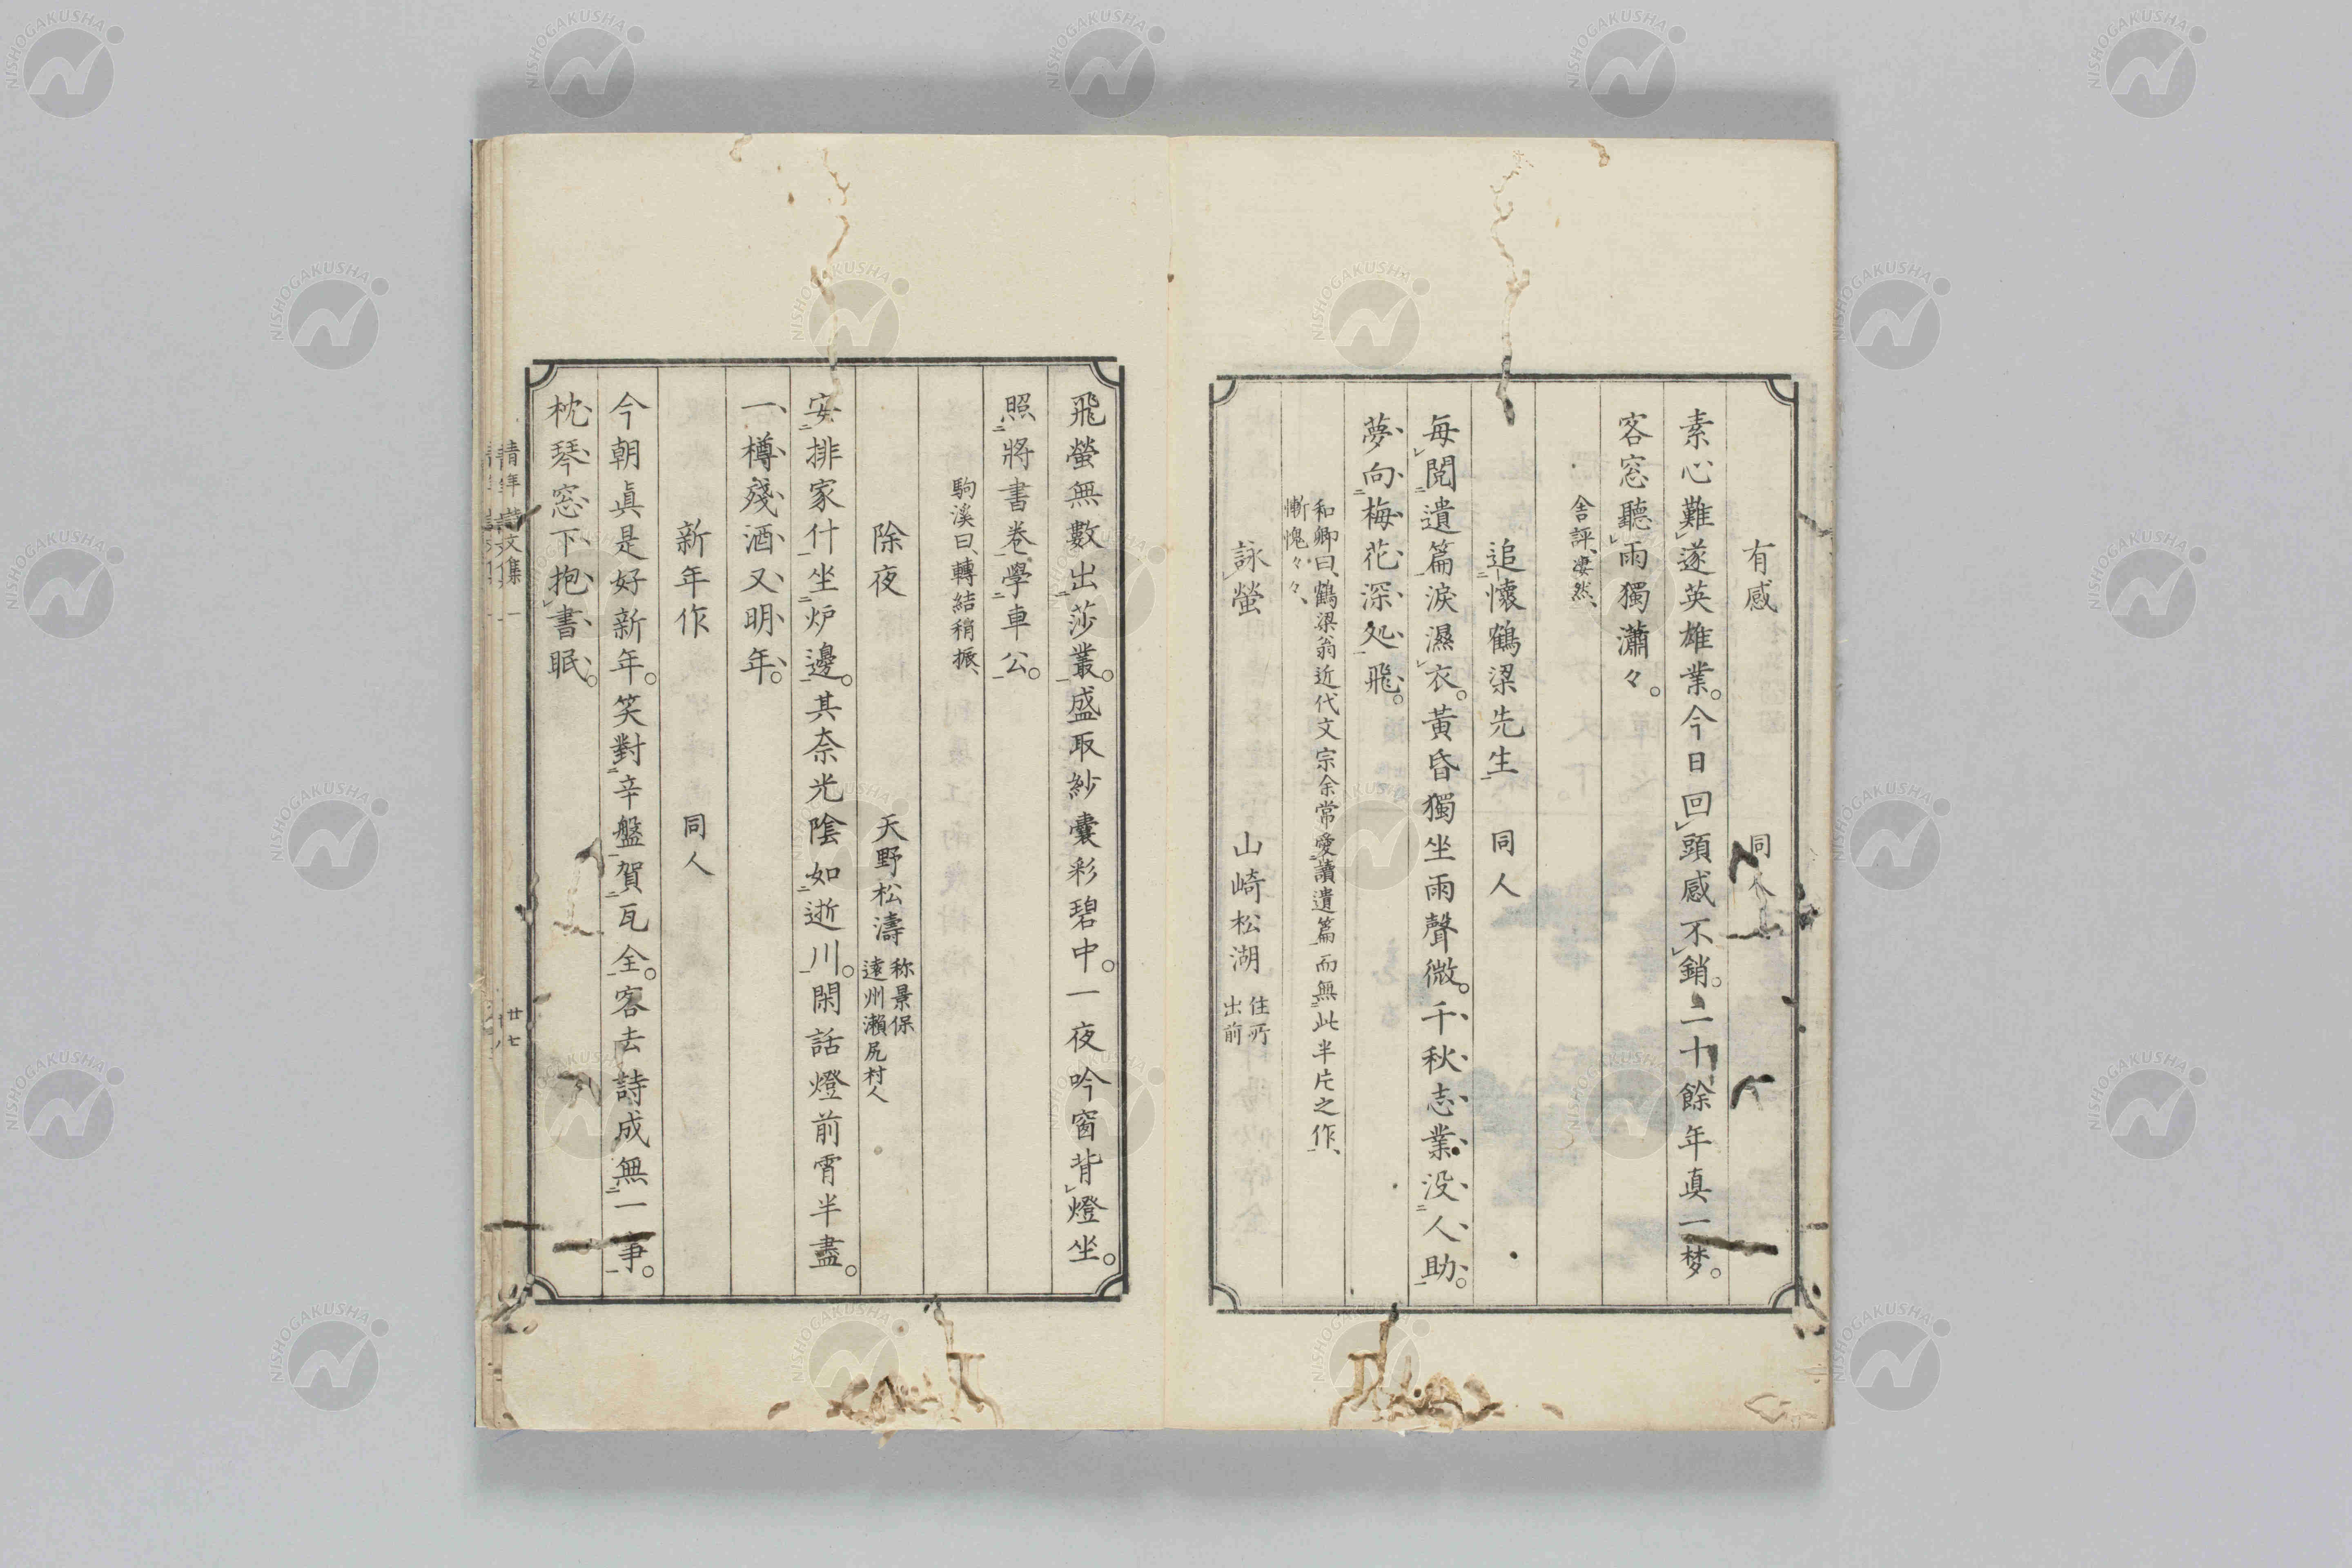 有感　同人
素心難遂英雄業。今日回頭感不銷。二十餘年真一梦。
客窓聽雨獨瀟々。
舎評、凄然、
追懷鶴梁先生　同人
毎閲遺篇涙濕衣。黃昏獨坐雨聲微。千秋志業没人助。
夢向梅花深处飛。
和卿曰、鶴梁翁近代文宗余常愛讀遺篇而無此半片之作、
慚愧々々、
詠螢　山崎松湖　住所
出前
飛螢無數出莎叢。盛取紗嚢彩碧中。一夜吟窗背燈坐。
照將書卷學車公。
駒溪曰、轉結稍振、
除夜　天野松濤　称景保
遠州瀬尻村人
安排家什坐炉邊。其奈光陰如逝川。閑話燈前宵半盡。
一樽殘酒又明年。
新年作　同人
今朝眞是好新年。笑對辛盤賀瓦全。客去詩成無一事。
枕琴窓下抱書眠。
廿七
NISHOGAKUSHA